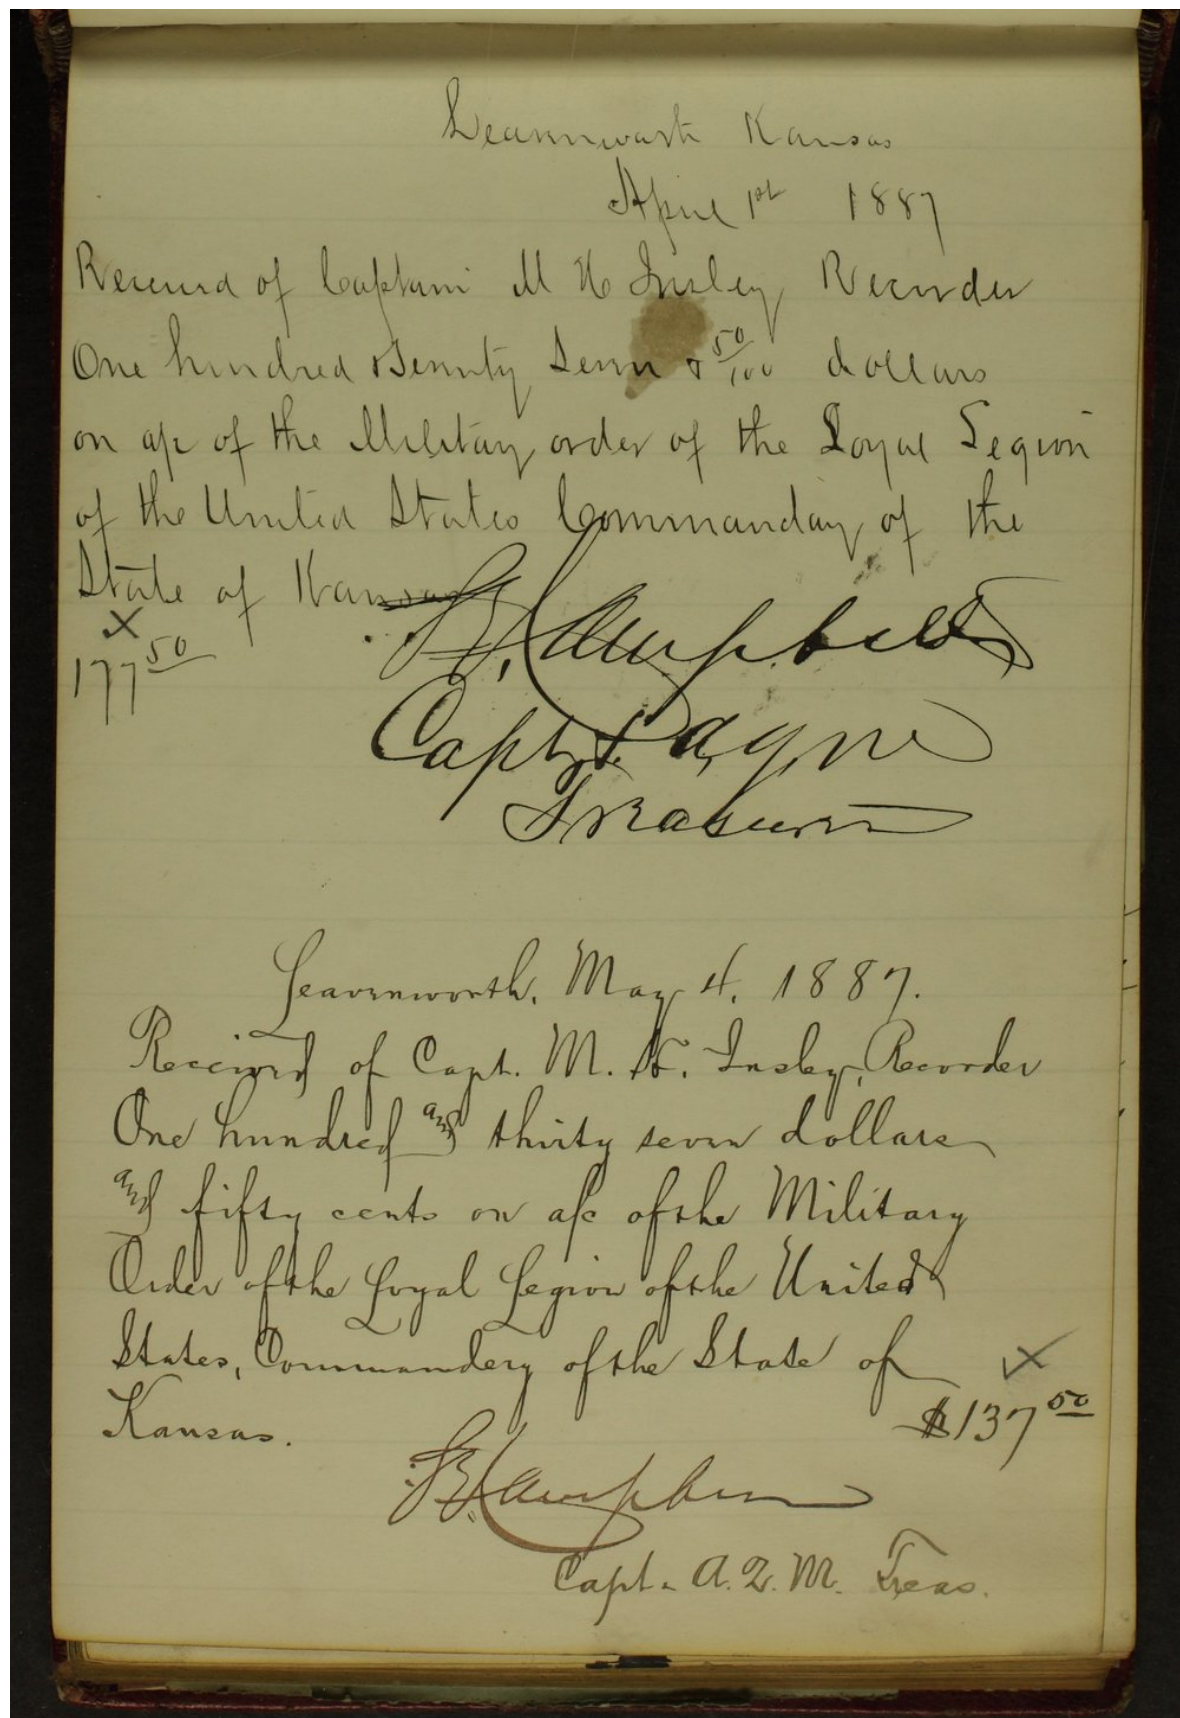 Leavenworth Kansas
April 1st 1887
Received of Captain M H Insley Recorder
One hundred & Seventy Seven & 50/100 dollars
on a/c of the Military order of the Loyal Legion
of the United States Commandery of the
State of Kansas
x
177 50
Campbell
Capt &
Treasurer
Leavenworth, May 4, 1887.
Received of Capt. M. H. Insley, Recorder
One hundred and thirty seven dollars
and fifty cents on a/c of the Military
Order of the Loyal Legion of the United
States, Commandery of the State of
x
Kansas. $137 50
Campbell
Capt. A.Q.M. Treas.